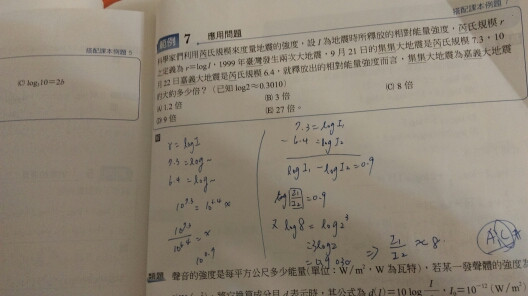 搭配課本例題 5
Ⓒ log₅10=2b
範例 7 應用問題
科學家們利用芮氏規模來度量地震的強度，設 I 為地震時所釋放的相對能量強度，芮氏規模 r
之定義為 r=logI，1999年臺灣發生兩次大地震，9月21日的集集大地震是芮氏規模7.3，10
月22日嘉義大地震是芮氏規模6.4，就釋放出的相對能量強度而言，集集大地震為嘉義大地震
的大約多少倍？（已知 log2≈0.3010）
(A) 1.2 倍
(B) 3 倍
(C) 8 倍
(D) 9 倍
(E) 27 倍。
r = log I
7.3 = log
6.4 = log
10^7.3 = 10^6.4 x
10^7.3 / 10^6.4 = x
10^0.9
7.3 = log I₁
- 6.4 = log I₂
log I₁ - log I₂ = 0.9
log I₁/I₂ = 0.9
又 log8 = log2³
=3log2
⇒ I₁/I₂ ≈ 8
聲音的強度是每平方公尺多少能量（單位：W/m²，W 為瓦特），若某一發聲體的強度為
表示時，其公式為 d(I)=10log I/I₀，I₀=10⁻¹²（W/m²）